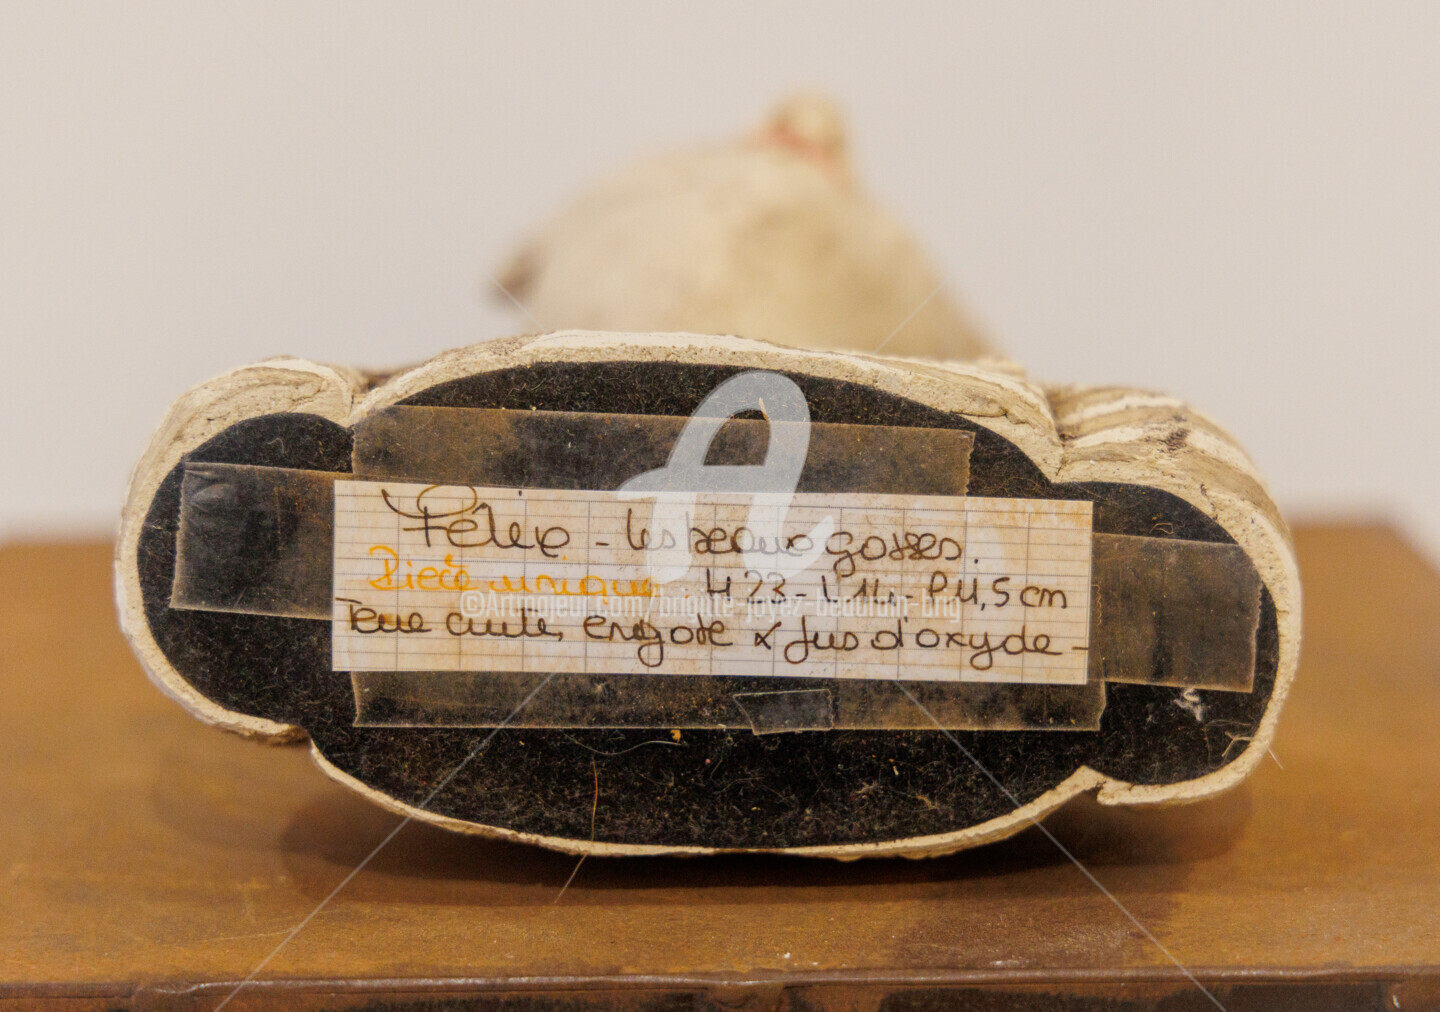 Félix - les beaux gosses.
Pièce unique. H 23 - L 14 - P 11,5 cm
Terre cuite, engobe & jus d'oxyde -
©Artmajeur.com/brigitte-joyez-beaudoin-brig